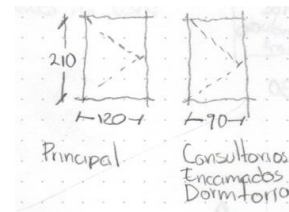 210
120
90
Principal
Consultorios
Encamados
Dormitorio